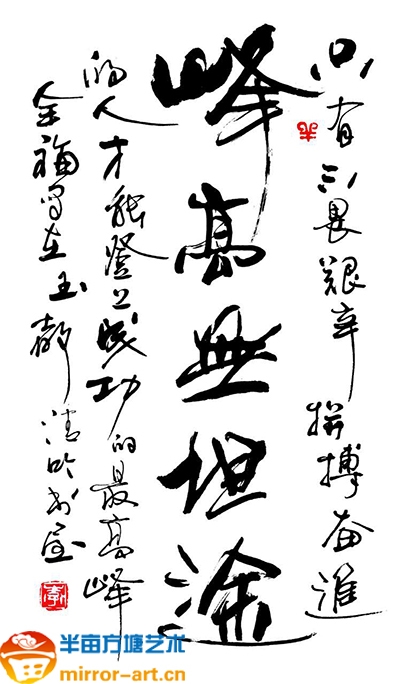 只有不畏艱辛拼搏奋進
峰高無坦途
的人才能登上成功的最高峰
金福写在玉都
半亩方塘艺术
mirror-art.cn